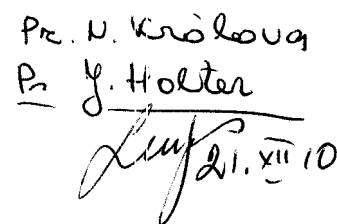 Pr. N. Králova
Pr J. Holter
21. XII 10